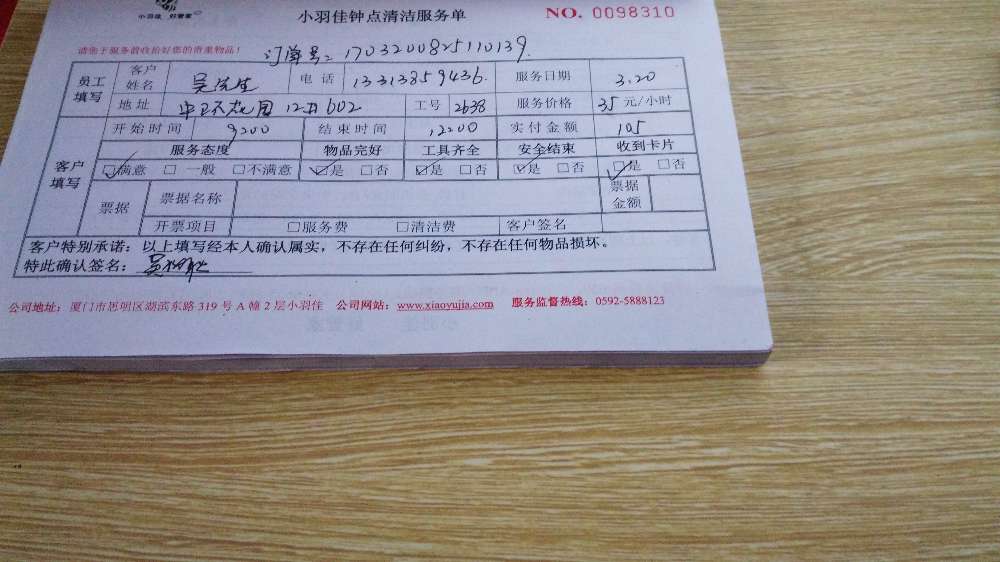 小羽佳 好管家
小羽佳钟点清洁服务单
NO. 0098310
请您于服务前收拾好您的贵重物品!
订单号: 1703200825110139
员工填写 客户姓名 吴先生 电话 13313859436 服务日期 3.20
地址 12 602 工号 2638 服务价格 35 元/小时
客户填写 开始时间 9:00 结束时间 12:00 实付金额 105
服务态度 物品完好 工具齐全 安全结束 收到卡片
☑满意 □一般 □不满意 ☑是 □否 ☑是 □否 ☑是 □否 ☑是 □否
票据 票据名称 票据金额
开票项目 □服务费 □清洁费 客户签名
客户特别承诺: 以上填写经本人确认属实, 不存在任何纠纷, 不存在任何物品损坏。
特此确认签名: 吴
公司地址: 厦门市思明区湖滨东路 319 号 A 幢 2 层小羽佳 公司网站: www.xiaoyujia.com 服务监督热线: 0592-5888123